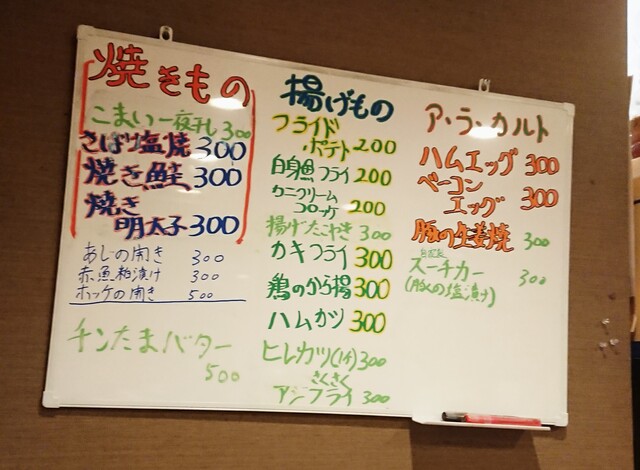 焼きもの
こまい一夜干し 300
さばの塩焼 300
焼き鮭 300
焼き
明太子 300
あじの開き 300
赤魚粕漬け 300
ホッケの開き 500
チンたまバター
500
揚げもの
フライド
ポテト 200
白身魚フライ 200
カニクリーム
コロッケ 200
揚げたこやき 300
カキフライ 300
鶏のから揚 300
ハムカツ 300
ヒレカツ(1ケ) 300
さくさく
アジフライ 300
ア・ラ・カルト
ハムエッグ 300
ベーコン
エッグ 300
豚の生姜焼 300
スーチカー 300
(豚の塩漬け)